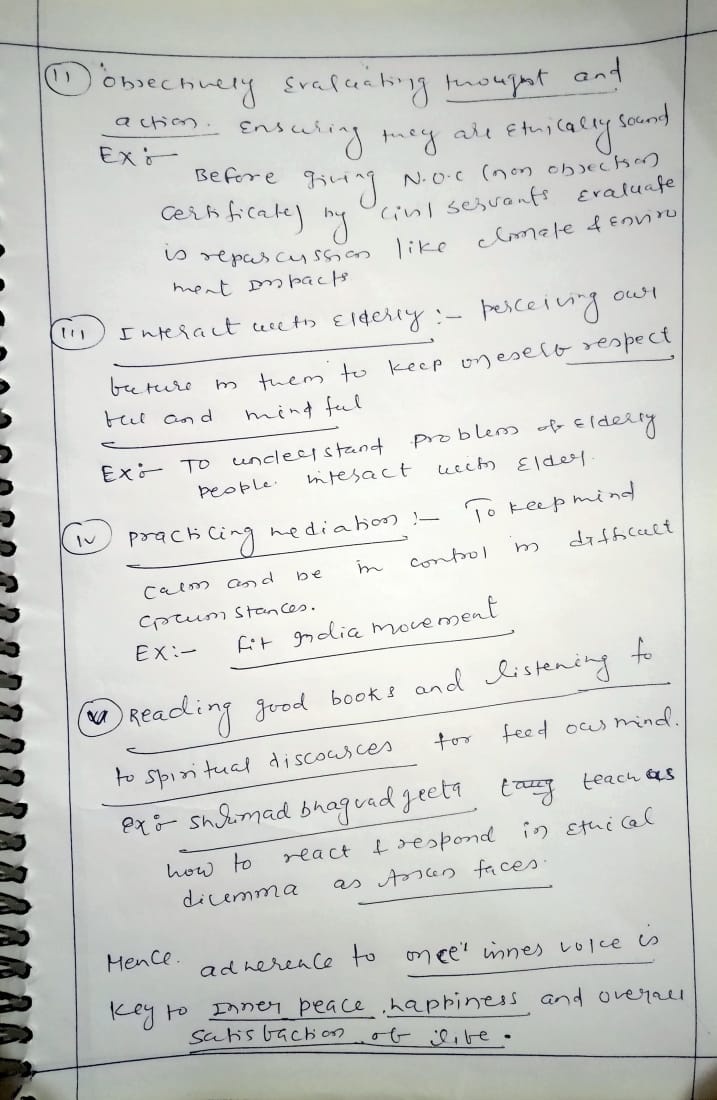 (ii) objectively Evaluating thought and
action. Ensuring they are Ethically sound
Ex :-
Before giving N.O.C (non objection
certificate) by civil servants Evaluate
is repurcussion like climate & Enviro
ment Impacts
(iii) Interact with Elderly :- perceiving our
future in them to keep oneself respect
ful and mindful
Ex :- To understand problem of Elderly
people. interact with Elder.
(iv) practicing mediation :- To keep mind
calm and be in control in difficult
circumstances.
EX :- Fit India movement
Reading good books and listening to
to spiritual discources for feed our mind.
ex :- Shrimad bhagvad geeta teach us
how to react & respond in Ethical
dicemma as Arjun faces.
Hence. adherence to once's inner voice is
key to Inner peace, happiness and overall
satisfaction of life.